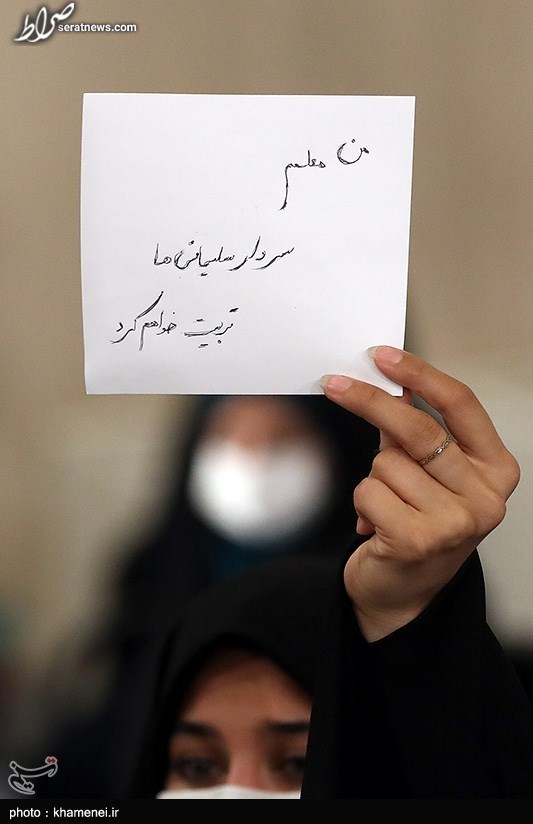 صراط
seratnews.com
من معلمم
سردار سلیمانی‌ها
تربیت خواهم کرد
تسنیم
photo : khamenei.ir